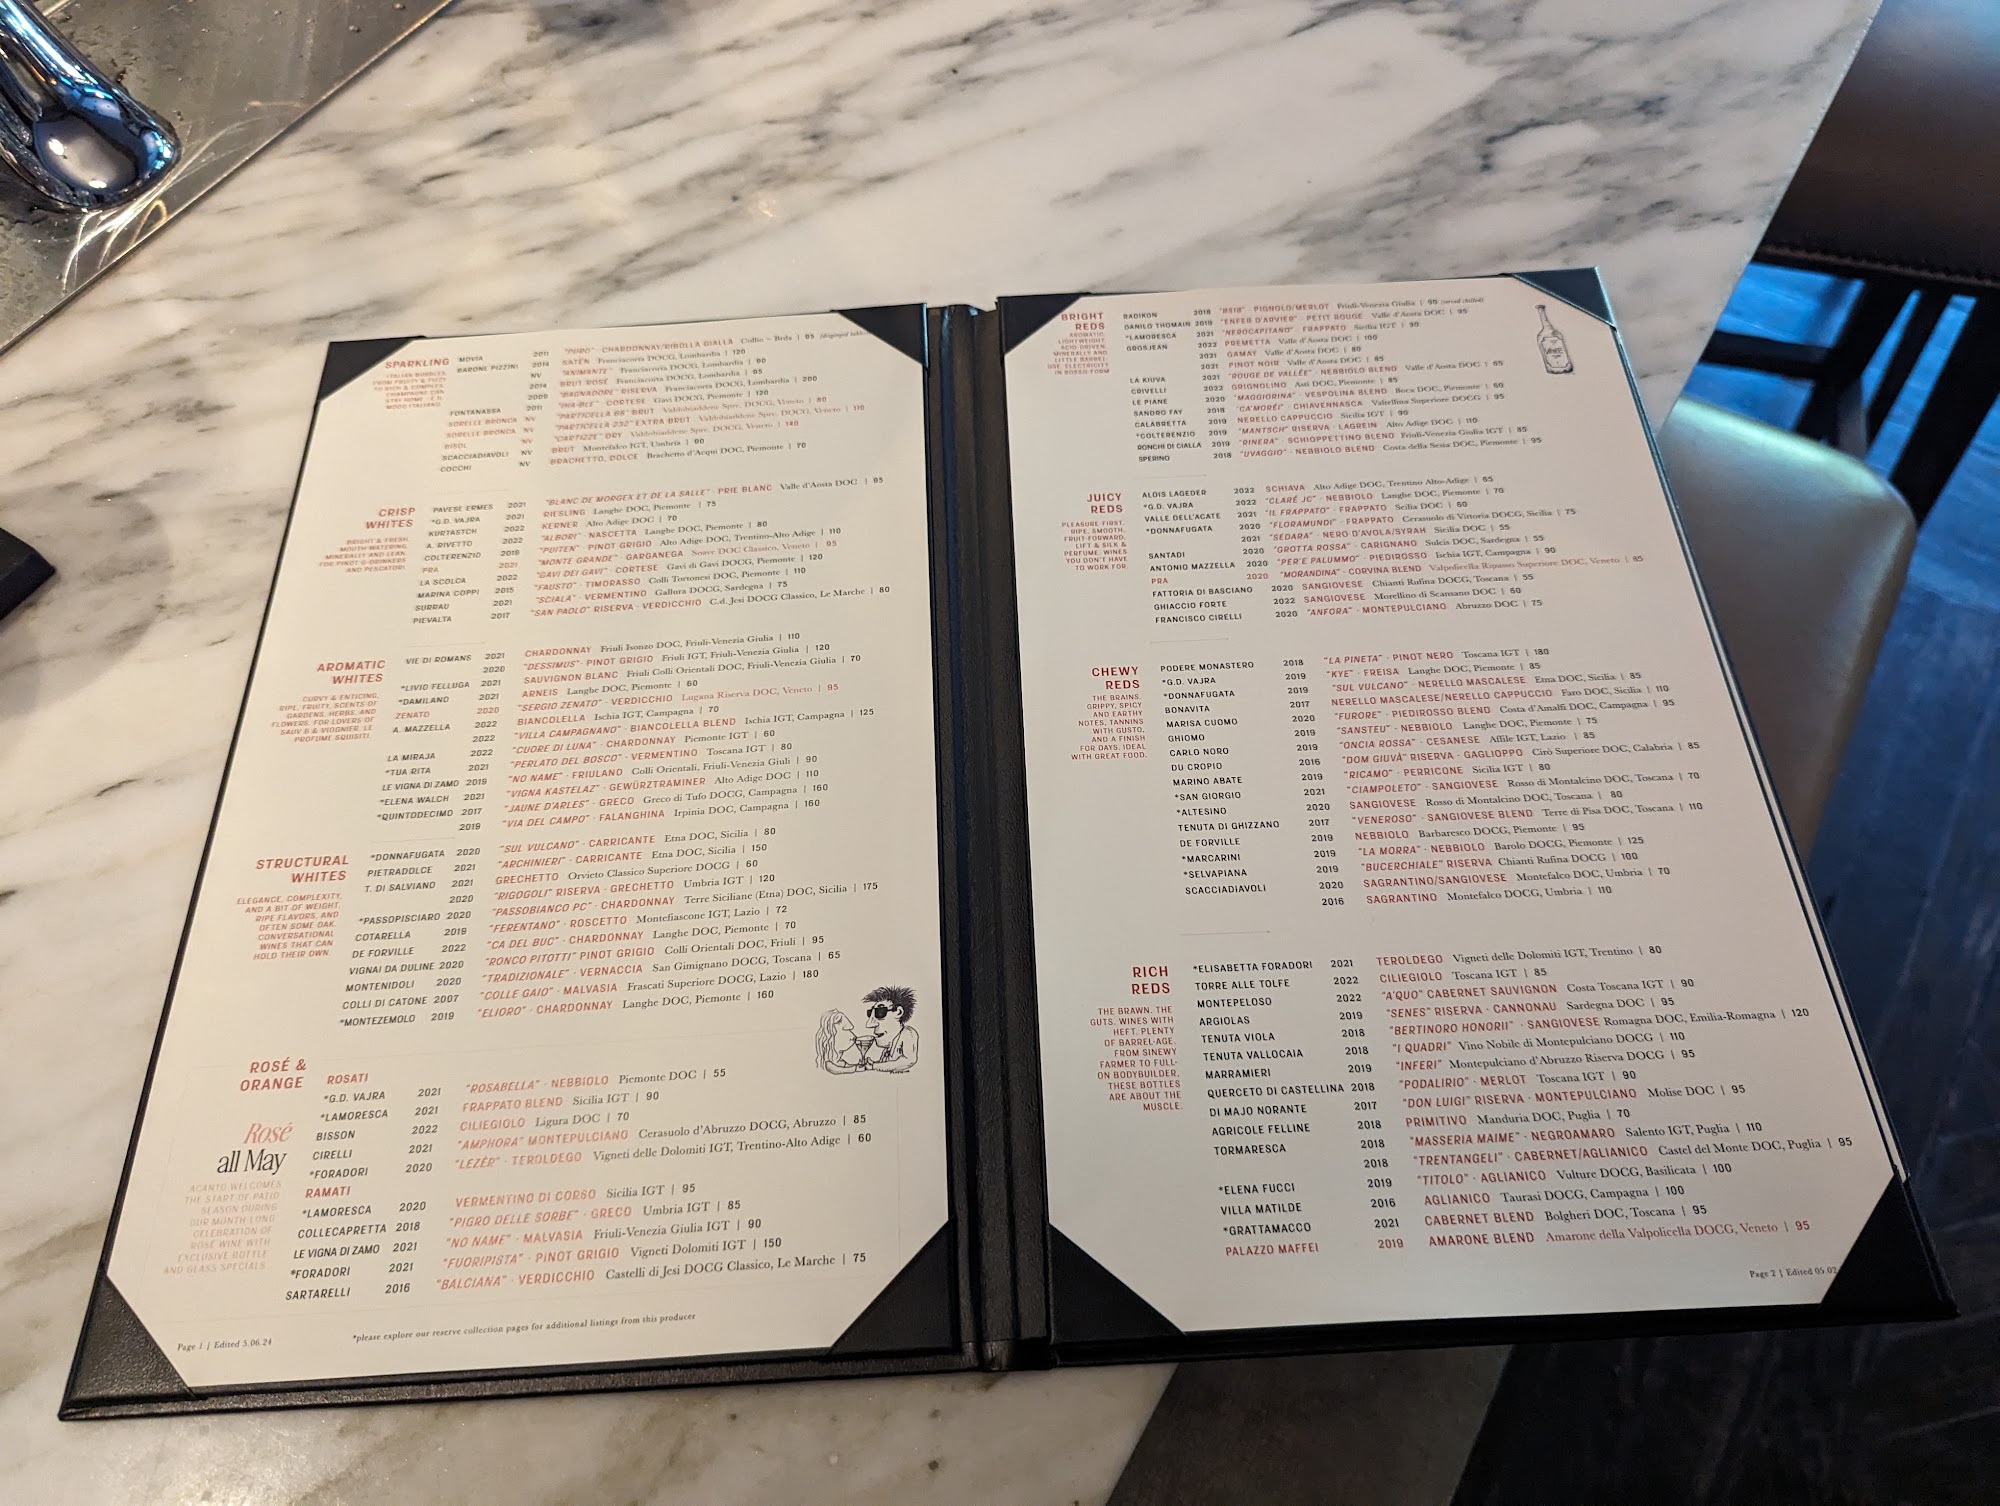 SPARKLING
ITALIAN BUBBLES,
FROM FRUITY & FIZZY
TO RICH & COMPLEX.
CHAMPAGNE CAN
STAY HOME - È IL
MODO ITALIANO.
MOVIA 2011 "PURO" · CHARDONNAY/RIBOLLA GIALLA Collio – Brda | 95
BARONE PIZZINI 2019 SATÈN Franciacorta DOCG, Lombardia | 120
NV "ANIMANTE" Franciacorta DOCG, Lombardia | 90
2019 BRUT ROSÉ Franciacorta DOCG, Lombardia | 95
2009 "BAGNADORE" RISERVA Franciacorta DOCG, Lombardia | 200
FONTANASSA 2011 CORTESE Gavi DOCG, Piemonte | 120
SORELLE BRONCA NV "PARTICELLA 68" BRUT Valdobiaddene Spre. DOCG, Veneto | 80
SORELLE BRONCA NV "PARTICELLA 232" EXTRA BRUT Valdobiaddene Spre. DOCG, Veneto | 110
BISOL NV "CARTIZZE" DRY Valdobiaddene Spre. DOCG, Veneto | 140
SCACCIADIAVOLI NV BRUT Montefalco IGT, Umbria | 90
COCCHI NV BRACHETTO, DOLCE Brachetto d'Acqui DOC, Piemonte | 70
CRISP
WHITES
BRIGHT & FRESH,
MOUTH-WATERING,
MINERALLY AND LEAN.
FOR PINOT G-DRINKERS
AND PESCATORI.
PAVESE ERMES 2021 "BLANC DE MORGEX ET DE LA SALLE" · PRIE BLANC Valle d'Aosta DOC | 95
*G.D. VAJRA 2021 RIESLING Langhe DOC, Piemonte | 75
KURTASTCH 2022 KERNER Alto Adige DOC | 70
A. RIVETTO 2022 "ALBORI" · NASCETTA Langhe DOC, Piemonte | 80
COLTERENZIO 2019 "PUITEN" · PINOT GRIGIO Alto Adige DOC, Trentino-Alto Adige | 110
PRA 2021 "MONTE GRANDE" · GARGANEGA Soave DOC Classico, Veneto | 95
LA SCOLCA 2022 "GAVI DEI GAVI" · CORTESE Gavi di Gavi DOCG, Piemonte | 120
MARINA COPPI 2015 "FAUSTO" · TIMORASSO Colli Tortonesi DOC, Piemonte | 110
SURRAU 2021 "SCIALA" · VERMENTINO Gallura DOCG, Sardegna | 75
PIEVALTA 2017 "SAN PAOLO" RISERVA · VERDICCHIO C.d. Jesi DOCG Classico, Le Marche | 80
AROMATIC
WHITES
CURVY & ENTICING,
RIPE, FRUITY, SCENTS OF
GARDENS, HERBS, AND
FLOWERS. FOR LOVERS OF
SAUV B & VIOGNIER. LE
PROFUME SQUISITI.
VIE DI ROMANS 2021 CHARDONNAY Friuli Isonzo DOC, Friuli-Venezia Giulia | 110
2020 "DESSIMUS" · PINOT GRIGIO Friuli IGT, Friuli-Venezia Giulia | 120
*LIVIO FELLUGA 2021 SAUVIGNON BLANC Friuli Colli Orientali DOC, Friuli-Venezia Giulia | 70
*DAMILANO 2021 ARNEIS Langhe DOC, Piemonte | 60
ZENATO 2020 "SERGIO ZENATO" · VERDICCHIO Lugana Riserva DOC, Veneto | 95
A. MAZZELLA 2022 BIANCOLELLA Ischia IGT, Campagna | 70
2022 "VILLA CAMPAGNANO" · BIANCOLELLA BLEND Ischia IGT, Campagna | 125
LA MIRAJA 2022 "CUORE DI LUNA" · CHARDONNAY Piemonte IGT | 60
*TUA RITA 2021 "PERLATO DEL BOSCO" · VERMENTINO Toscana IGT | 80
LE VIGNA DI ZAMO 2019 "NO NAME" · FRIULANO Colli Orientali, Friuli-Venezia Giuli | 90
*ELENA WALCH 2021 "VIGNA KASTELAZ" · GEWÜRZTRAMINER Alto Adige DOC | 110
*QUINTODECIMO 2017 "JAUNE D'ARLES" · GRECO Greco di Tufo DOCG, Campagna | 160
2019 "VIA DEL CAMPO" · FALANGHINA Irpinia DOC, Campagna | 160
STRUCTURAL
WHITES
ELEGANCE, COMPLEXITY,
AND A BIT OF WEIGHT.
RIPE FLAVORS, AND
OFTEN SOME OAK.
CONVERSATIONAL
WINES THAT CAN
HOLD THEIR OWN.
*DONNAFUGATA 2020 "SUL VULCANO" · CARRICANTE Etna DOC, Sicilia | 80
PIETRADOLCE 2021 "ARCHINIERI" · CARRICANTE Etna DOC, Sicilia | 150
T. DI SALVIANO 2021 GRECHETTO Orvieto Classico Superiore DOCG | 60
2020 "RIGOGOLI" RISERVA · GRECHETTO Umbria IGT | 120
*PASSOPISCIARO 2020 "PASSOBIANCO PC" · CHARDONNAY Terre Siciliane (Etna) DOC, Sicilia | 175
COTARELLA 2019 "FERENTANO" · ROSCETTO Montefiascone IGT, Lazio | 72
DE FORVILLE 2022 "CA DEL BUC" · CHARDONNAY Langhe DOC, Piemonte | 70
VIGNAI DA DULINE 2020 "RONCO PITOTTI" PINOT GRIGIO Colli Orientali DOC, Friuli | 95
MONTENIDOLI 2020 "TRADIZIONALE" · VERNACCIA San Gimignano DOCG, Toscana | 65
COLLI DI CATONE 2007 "COLLE GAIO" · MALVASIA Frascati Superiore DOCG, Lazio | 180
*MONTEZEMOLO 2019 "ELIORO" · CHARDONNAY Langhe DOC, Piemonte | 160
ROSÉ &
ORANGE
ROSATI
*G.D. VAJRA 2021 "ROSABELLA" · NEBBIOLO Piemonte DOC | 55
*LAMORESCA 2021 FRAPPATO BLEND Sicilia IGT | 90
BISSON 2022 CILIEGIOLO Ligura DOC | 70
CIRELLI 2021 "AMPHORA" MONTEPULCIANO Cerasuolo d'Abruzzo DOCG, Abruzzo | 85
*FORADORI 2020 "LEZÈR" · TEROLDEGO Vigneti delle Dolomiti IGT, Trentino-Alto Adige | 60
RAMATI
*LAMORESCA 2020 VERMENTINO DI CORSO Sicilia IGT | 95
COLLECAPRETTA 2018 "PIGRO DELLE SORBE" · GRECO Umbria IGT | 85
LE VIGNA DI ZAMO 2021 "NO NAME" · MALVASIA Friuli-Venezia Giulia IGT | 90
*FORADORI 2021 "FUORIPISTA" · PINOT GRIGIO Vigneti Dolomiti IGT | 150
SARTARELLI 2016 "BALCIANA" · VERDICCHIO Castelli di Jesi DOCG Classico, Le Marche | 75
Rosé
all May
ACANTO WELCOMES
THE START OF PATIO
SEASON DURING
OUR MONTH-LONG
CELEBRATION OF
ROSÉ WINE WITH
EXCLUSIVE BOTTLE
AND GLASS SPECIALS.
*please explore our reserve collection pages for additional listings from this producer
Page 1 | Edited 5.06.24
BRIGHT
REDS
AROMATIC,
LIGHTWEIGHT,
ACID-DRIVEN,
MINERALLY AND
LITTLE BARREL
USE. ELECTRICITY
IN ROSSO FORM.
RADIKON 2018 "RS18" · PIGNOLO/MERLOT Friuli-Venezia Giulia | 90 (served chilled)
DANILO THOMAIN 2019 "ENFER D'ARVIER" · PETIT ROUGE Valle d'Aosta DOC | 95
*LAMORESCA 2021 "NEROCAPITANO" · FRAPPATO Sicilia IGT | 90
GROSJEAN 2022 PREMETTA Valle d'Aosta DOC | 100
2021 GAMAY Valle d'Aosta DOC | 80
2021 PINOT NOIR Valle d'Aosta DOC | 85
LA KIUVA 2021 "ROUGE DE VALLÉE" · NEBBIOLO BLEND Valle d'Aosta DOC | 65
CRIVELLI 2022 GRIGNOLINO Asti DOC, Piemonte | 85
LE PIANE 2020 "MAGGIORINA" · VESPOLINA BLEND Boca DOC, Piemonte | 60
SANDRO FAY 2018 "CA'MORÈI" · CHIAVENNASCA Valtellina Superiore DOCG | 95
CALABRETTA 2019 NERELLO CAPPUCCIO Sicilia IGT | 90
*COLTERENZIO 2019 "MANTSCH" RISERVA · LAGREIN Alto Adige DOC | 110
RONCHI DI CIALLA 2019 "RINERA" · SCHIOPPETTINO BLEND Friuli-Venezia Giulia IGT | 85
SPERINO 2018 "UVAGGIO" · NEBBIOLO BLEND Costa della Sesia DOC, Piemonte | 95
JUICY
REDS
PLEASURE FIRST.
RIPE, SMOOTH,
FRUIT-FORWARD.
LIFT & SILK &
PERFUME. WINES
YOU DON'T HAVE
TO WORK FOR.
ALOIS LAGEDER 2022 SCHIAVA Alto Adige DOC, Trentino Alto-Adige | 65
*G.D. VAJRA 2022 "CLARÉ JC" · NEBBIOLO Langhe DOC, Piemonte | 70
VALLE DELL'ACATE 2021 "IL FRAPPATO" · FRAPPATO Scilia DOC | 60
*DONNAFUGATA 2020 "FLORAMUNDI" · FRAPPATO Cerasuolo di Vittoria DOCG, Sicilia | 75
2021 "SEDARA" · NERO D'AVOLA/SYRAH Sicilia DOC | 55
SANTADI 2020 "GROTTA ROSSA" · CARIGNANO Sulcis DOC, Sardegna | 55
ANTONIO MAZZELLA 2020 "PER'E PALUMMO" · PIEDIROSSO Ischia IGT, Campagna | 90
PRA 2020 "MORANDINA" · CORVINA BLEND Valpolicella Ripasso Superiore DOC, Veneto | 85
FATTORIA DI BASCIANO 2020 SANGIOVESE Chianti Rufina DOCG, Toscana | 55
GHIACCIO FORTE 2022 SANGIOVESE Morellino di Scansano DOC | 60
FRANCISCO CIRELLI 2020 "ANFORA" · MONTEPULCIANO Abruzzo DOC | 75
CHEWY
REDS
THE BRAINS.
GRIPPY, SPICY
AND EARTHY
NOTES, TANNINS
WITH GUSTO,
AND A FINISH
FOR DAYS. IDEAL
WITH GREAT FOOD.
PODERE MONASTERO 2018 "LA PINETA" · PINOT NERO Toscana IGT | 180
*G.D. VAJRA 2019 "KYE" · FREISA Langhe DOC, Piemonte | 85
*DONNAFUGATA 2019 "SUL VULCANO" · NERELLO MASCALESE Etna DOC, Sicilia | 85
BONAVITA 2017 NERELLO MASCALESE/NERELLO CAPPUCCIO Faro DOC, Sicilia | 110
MARISA CUOMO 2020 "FURORE" · PIEDIROSSO BLEND Costa d'Amalfi DOC, Campagna | 95
GHIOMO 2019 "SANSTEU" · NEBBIOLO Langhe DOC, Piemonte | 75
CARLO NORO 2019 "ONCIA ROSSA" · CESANESE Affile IGT, Lazio | 85
DU CROPIO 2016 "DOM GIUVÀ" RISERVA · GAGLIOPPO Cirò Superiore DOC, Calabria | 85
MARINO ABATE 2019 "RICAMO" · PERRICONE Sicilia IGT | 80
*SAN GIORGIO 2021 "CIAMPOLETO" · SANGIOVESE Rosso di Montalcino DOC, Toscana | 70
*ALTESINO 2020 SANGIOVESE Rosso di Montalcino DOC, Toscana | 80
TENUTA DI GHIZZANO 2017 "VENEROSO" · SANGIOVESE BLEND Terre di Pisa DOC, Toscana | 110
DE FORVILLE 2019 NEBBIOLO Barbaresco DOCG, Piemonte | 95
*MARCARINI 2019 "LA MORRA" · NEBBIOLO Barolo DOC, Piemonte | 125
*SELVAPIANA 2019 "BUCERCHIALE" RISERVA Chianti Rufina DOCG | 100
SCACCIADIAVOLI 2020 SAGRANTINO/SANGIOVESE Montefalco DOC, Umbria | 70
2016 SAGRANTINO Montefalco DOCG, Umbria | 110
RICH
REDS
THE BRAWN. THE
GUTS. WINES WITH
HEFT. PLENTY
OF BARREL-AGE.
FROM SINEWY
FARMER TO FULL-
ON BODYBUILDER,
THESE BOTTLES
ARE ABOUT THE
MUSCLE.
*ELISABETTA FORADORI 2021 TEROLDEGO Vigneti delle Dolomiti IGT, Trentino | 80
TORRE ALLE TOLFE 2022 CILIEGIOLO Toscana IGT | 85
MONTEPELOSO 2022 "A'QUO" CABERNET SAUVIGNON Costa Toscana IGT | 90
ARGIOLAS 2019 "SENES" RISERVA · CANNONAU Sardegna DOC | 95
TENUTA VIOLA 2018 "BERTINORO HONORII" · SANGIOVESE Romagna DOC, Emilia-Romagna | 120
TENUTA VALLOCAIA 2018 "I QUADRI" Vino Nobile di Montepulciano DOCG | 110
MARRAMIERI 2019 "INFERI" Montepulciano d'Abruzzo Riserva DOCG | 95
QUERCETO DI CASTELLINA 2018 "PODALIRIO" · MERLOT Toscana IGT | 90
DI MAJO NORANTE 2017 "DON LUIGI" RISERVA · MONTEPULCIANO Molise DOC | 95
AGRICOLE FELLINE 2018 PRIMITIVO Manduria DOC, Puglia | 70
TORMARESCA 2018 "MASSERIA MAIME" · NEGROAMARO Salento IGT, Puglia | 110
2018 "TRENTANGELI" · CABERNET/AGLIANICO Castel del Monte DOC, Puglia | 95
*ELENA FUCCI 2019 "TITOLO" · AGLIANICO Vulture DOCG, Basilicata | 100
VILLA MATILDE 2016 AGLIANICO Taurasi DOCG, Campagna | 100
*GRATTAMACCO 2021 CABERNET BLEND Bolgheri DOC, Toscana | 95
PALAZZO MAFFEI 2019 AMARONE BLEND Amarone della Valpolicella DOCG, Veneto | 95
Page 2 | Edited 05.02